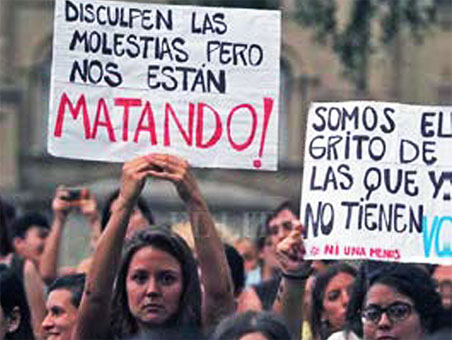 DISCULPEN LAS
MOLESTIAS PERO
NOS ESTÁN
MATANDO!
SOMOS EL
GRITO DE
LAS QUE Y
NO TIENEN
NI UNA MENOS